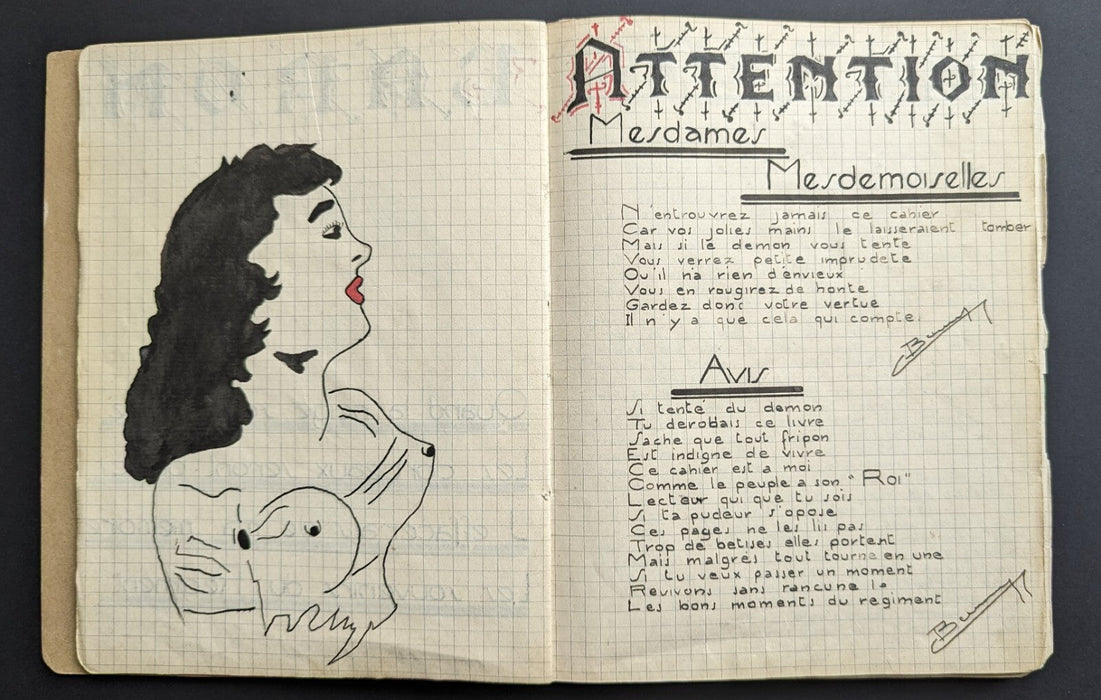 ATTENTION
Mesdames
Mesdemoiselles
N'entrouvrez jamais ce cahier
Car vos jolies mains le laisseraient tomber
Mais si le demon vous tente
Vous verrez petite imprudete
Qu'il n'a rien d'envieux
Vous en rougirez de honte
Gardez donc votre vertue
Il n'y a que cela qui compte.
Avis
Si tenté du demon
Tu derobais ce livre
Sache que tout fripon
Est indigne de vivre
Ce cahier est a moi
Comme le peuple a son "Roi"
Lecteur qui que tu sois
Si ta pudeur s'opose
Ces pages ne les lis pas
Trop de betises elles portent
Mais malgrés tout tourne en une
Si tu veux passer un moment
Revivons sans rancune
Les bons moments du regiment